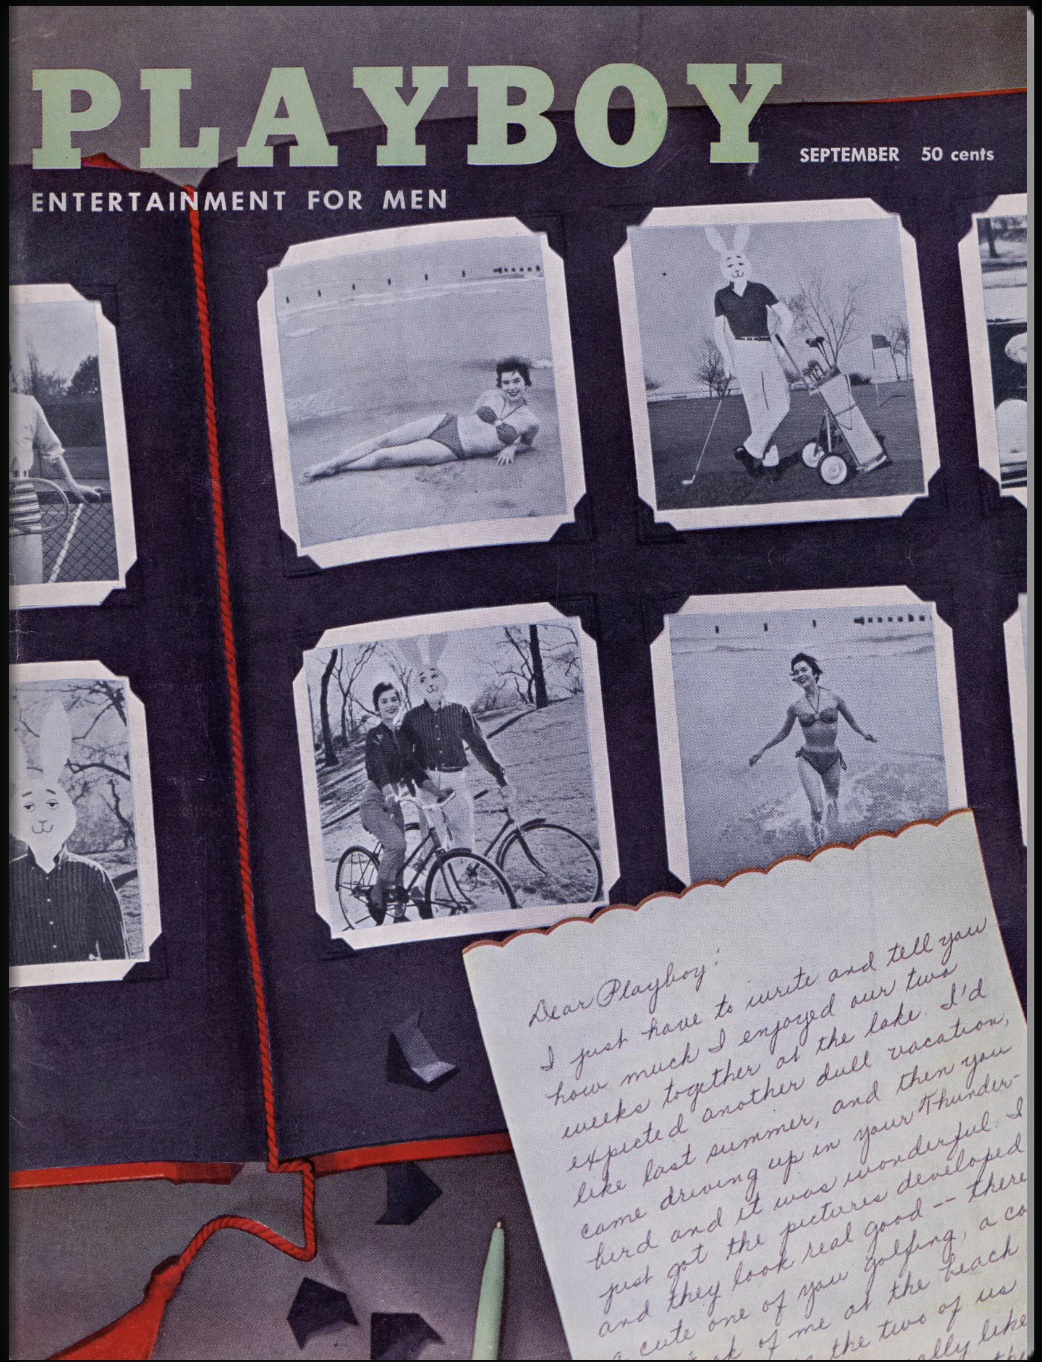 PLAYBOY
SEPTEMBER 50 cents
ENTERTAINMENT FOR MEN
Dear Playboy:
I just have to write and tell you
how much I enjoyed our two
weeks together at the lake. I'd
expected another dull vacation,
like last summer, and then you
came driving up in your Thunder-
bird and it was wonderful. I
just got the pictures developed
and they look real good -- there
a cute one of you golfing, a co
of me at the beach
the two of us
ally like